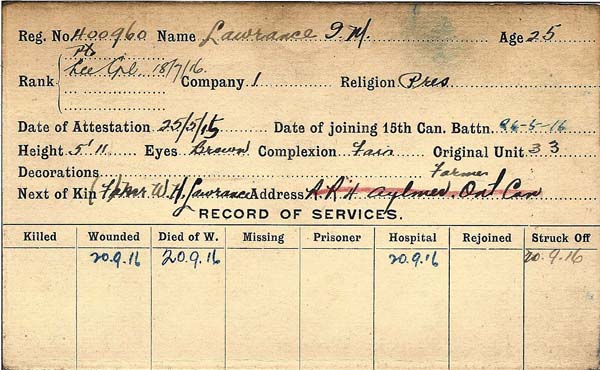 Reg. No 400960 Name Lawrance I.M. Age 25
Pte
Rank Lce Cpl 18/7/16. Company 1 Religion Pres
Date of Attestation 25/5/15 Date of joining 15th Can. Battn. 26-5-16
Height 5' 11 Eyes Brown Complexion Fair Original Unit 33
Decorations Farmer
Next of Kin (Father W.H. Lawrance Address Aylmer Ont Can
RECORD OF SERVICES.
Killed Wounded Died of W. Missing Prisoner Hospital Rejoined Struck Off
20.9.16 20.9.16 20.9.16 20.9.16